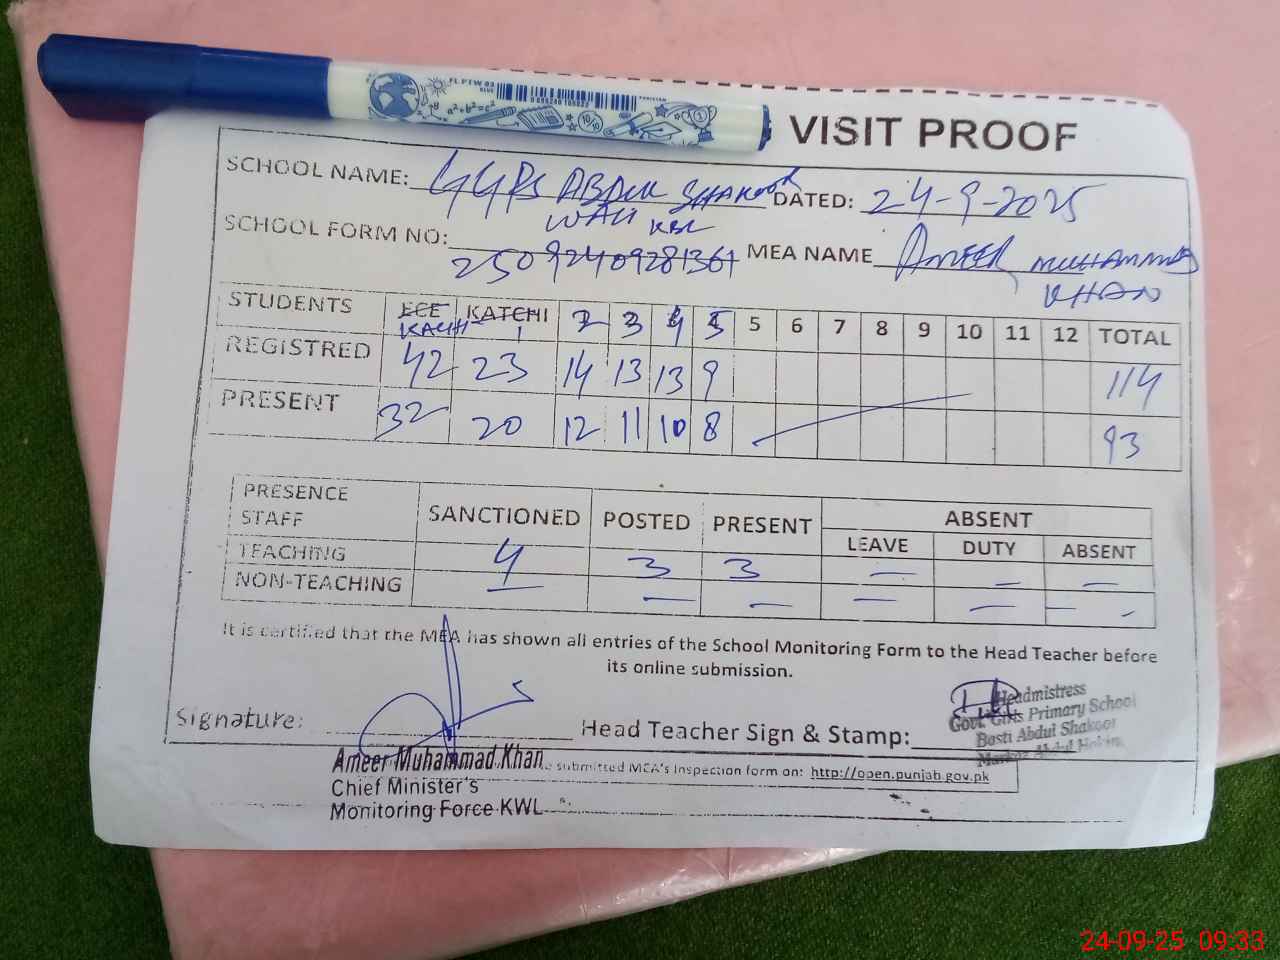 FLPTW 03
BLUE
a²+b²=c²
10/10
1
VISIT PROOF
SCHOOL NAME: GGPS ABDUL SHAKOOR DATED: 24-9-2025
WALI KBL
SCHOOL FORM NO: MEA NAME AMEER MUHAMMAD
KHAN
STUDENTS ECE KATCHI 2 3 4 5 5 6 7 8 9 10 11 12 TOTAL
KACHI 1
REGISTRED 42 23 14 13 13 9 114
PRESENT 32 20 12 11 10 8 93
PRESENCE STAFF SANCTIONED POSTED PRESENT ABSENT
LEAVE DUTY ABSENT
TEACHING 4 3 3 – – –
NON-TEACHING – – – – – –
It is certified that the MEA has shown all entries of the School Monitoring Form to the Head Teacher before
its online submission.
Signature: Head Teacher Sign & Stamp:
Headmistress
Govt. Girls Primary School
Basti Abdul Shakoor
Markaz Abdul Hakim
Ameer Muhammad Khan
submitted MEA's Inspection form on: http://open.punjab.gov.pk
Chief Minister's
Monitoring Force KWL
24-09-25 09:33